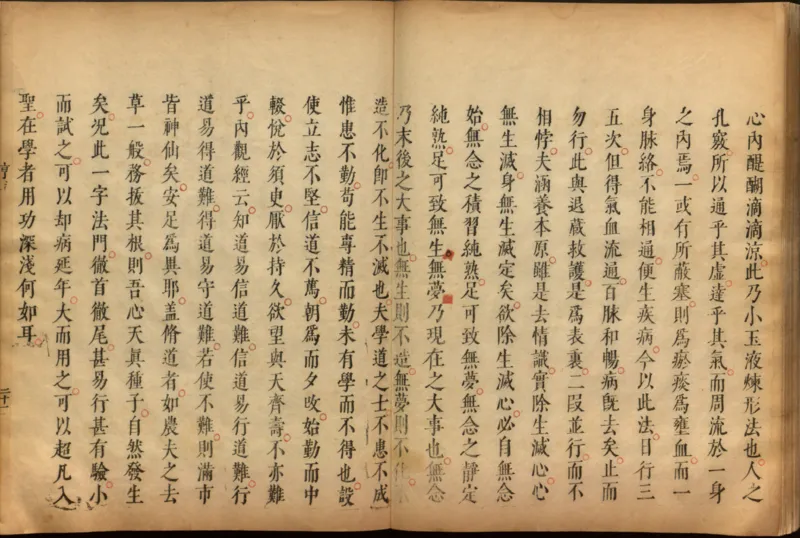 心內醍醐滴滴涼此乃小玉液煉形法也人之
孔竅所以通乎其虛達乎其氣而周流於一身
之內焉一或有所蔽塞則爲瘀痰爲壅血而一
身脉絡不能相通便生疾病今以此法日行三
五次但得氣血流通百脉和暢病旣去矣止而
勿行此與退藏救護是爲表裏二叚並行而不
相悖夫涵養本原雖是去情識實除生滅心心
無生滅身無生滅定矣欲除生滅心必自無念
始無念之積習純熟足可致無夢無念之靜定
純熟足可致無生無夢乃現在之大事也無念
乃末後之大事也無生則不造無夢則不化不
造不化卽不生不滅也夫學道之士不患不成
惟患不勤苟能專精而勤未有學而不得也設
使立志不堅信道不萬朝爲而夕攺始勤而中
輟悅於須臾厭於持久欲望與天齊壽不亦難
乎內觀經云知道易信道難信道易行道難行
道易得道難得道易守道難若使不難則滿市
皆神仙矣安足爲異耶蓋脩道者如農夫之去
草一般務拔其根則吾心天眞種子自然發生
矣况此一字法門徹首徹尾甚易行甚有驗小
而試之可以却病延年大而用之可以超凡入
聖在學者用功深淺何如耳